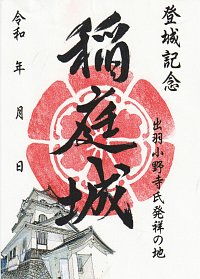 登城記念
出羽小野寺氏発祥の地
稲庭城
令和　年　月　日